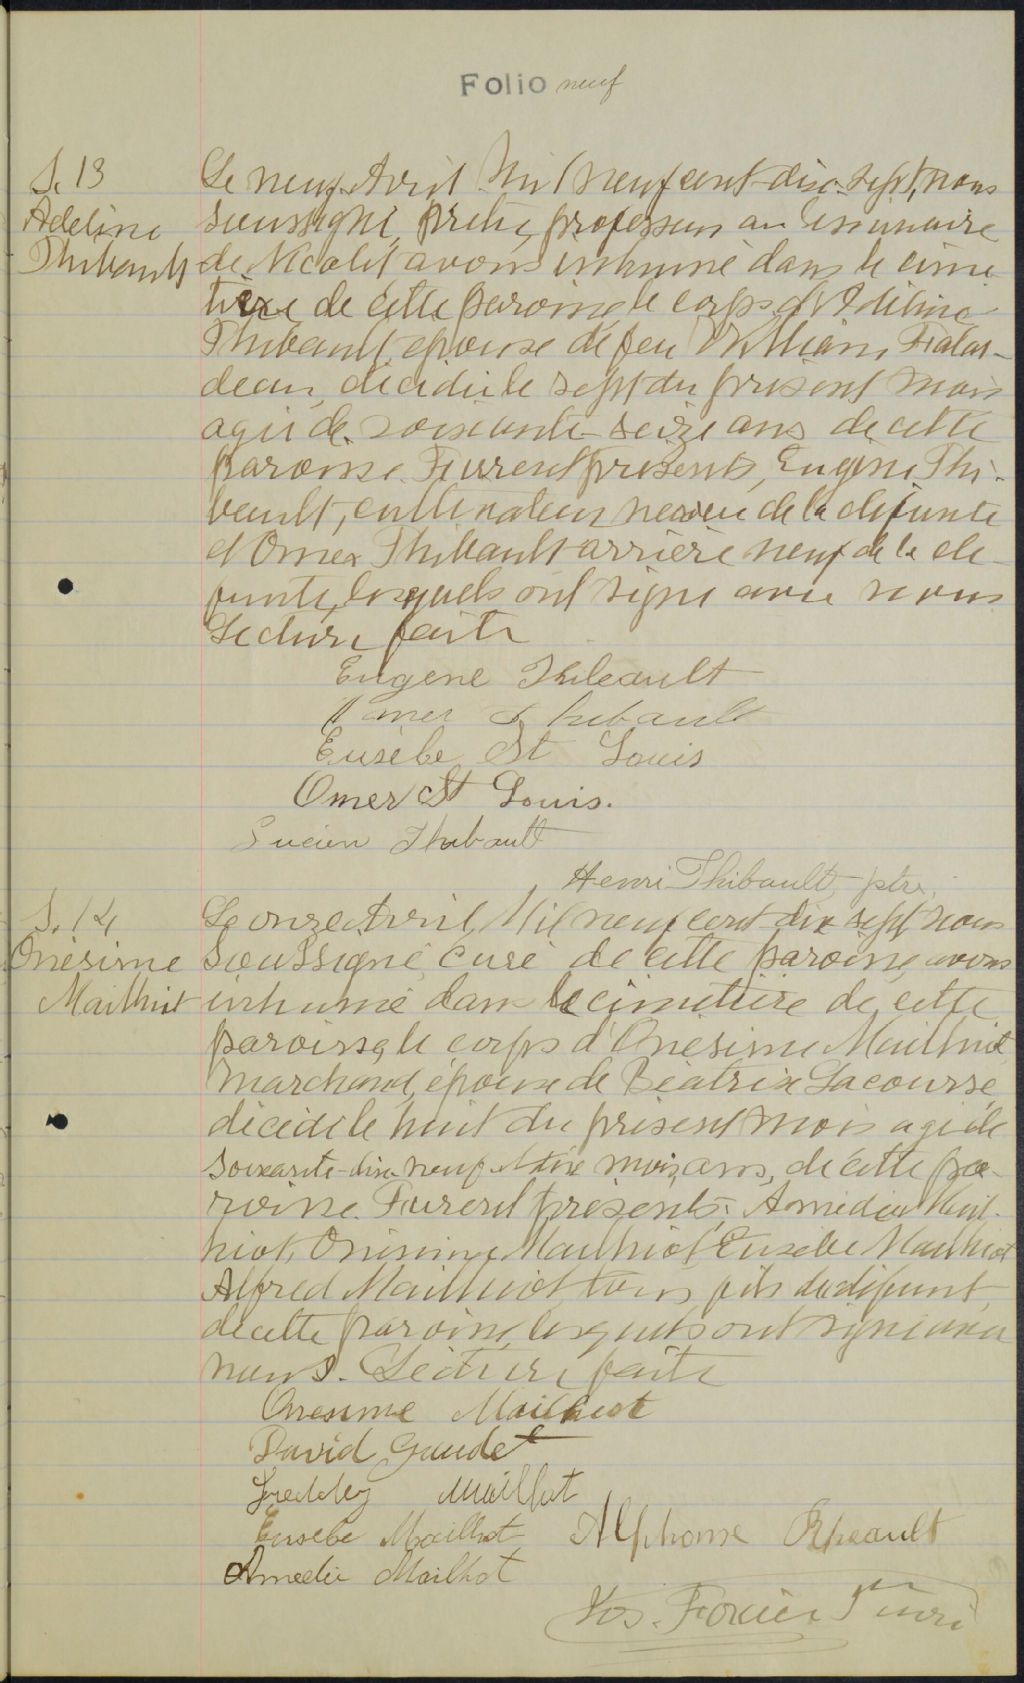 Folio neuf
S. 13
Adeline
Thibault
Le neuf Avril Mil neuf cent dix-sept, nous
soussigné, prêtre, professeur au Séminaire
de Nicolet avons inhumé dans le cime-
tière de cette paroisse le corps d'Adéline
Thibault, épouse de feu William Falar-
deau, décédée le sept du présent mois
agée de soixante-seize ans de cette
paroisse. Furent présents, Eugène Thi-
bault, cultivateur neveu de la défunte
et Omer Thibault arrière neuf de la dé-
funte, lesquels ont signé avec nous
Lecture faite
Eugene Thibeault
Omer Thibault
Eusèbe St Louis
Omer St Louis.
Lucien Thibault
Henri Thibault, ptre.
S. 14
Onésime
Mailhiot
Le onze Avril, Mil neuf cent dix sept nous
soussigné, curé de cette paroisse, avons
inhumé dans le cimetière de cette
paroisse, le corps d'Onésime Mailhiot
marchand, époux de Béatrix Lacourse,
décédé le huit du présent mois agé de
soixante-dix-neuf mois, ans, de cette pa-
roisse. Furent présents: Amédée Mail-
hiot, Onésime Mailhiot Eusèbe Mailhiot
Alfred Mailhiot tous fils du défunt,
de cette paroisse, lesquels ont signé avec
nous. Lecture faite
Onesime Mailhiot
David Gaudet
Freddy Mailhot
Eusebe Mailhot Alphonse
Amedée Mailhot
Jos. F. curé